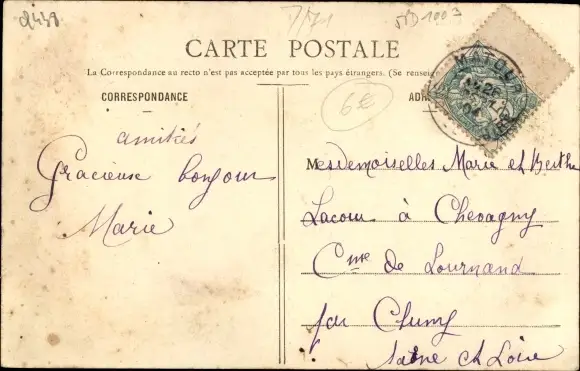 2438
7/71
ND 1003
CARTE POSTALE
La Correspondance au recto n'est pas acceptée par tous les pays étrangers. (Se renseig
CORRESPONDANCE
ADR
6€
MATOUR
26
04
amitiés
Gracieuse bonjour
Marie
Mesdemoiselles Marie et Berthe
Lacour à Chevagny
Cne de Lournand
par Cluny
Saône et Loire